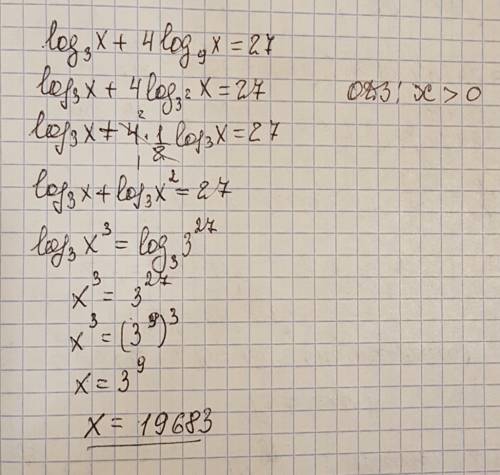 log₃x + 4log₉x = 27
log₃x + 4log₃²x = 27 ОДЗ: x > 0
log₃x + 4 · 1/2 log₃x = 27
log₃x + log₃x² = 27
log₃x³ = log₃3²⁷
x³ = 3²⁷
x³ = (3⁹)³
x = 3⁹
x = 19683